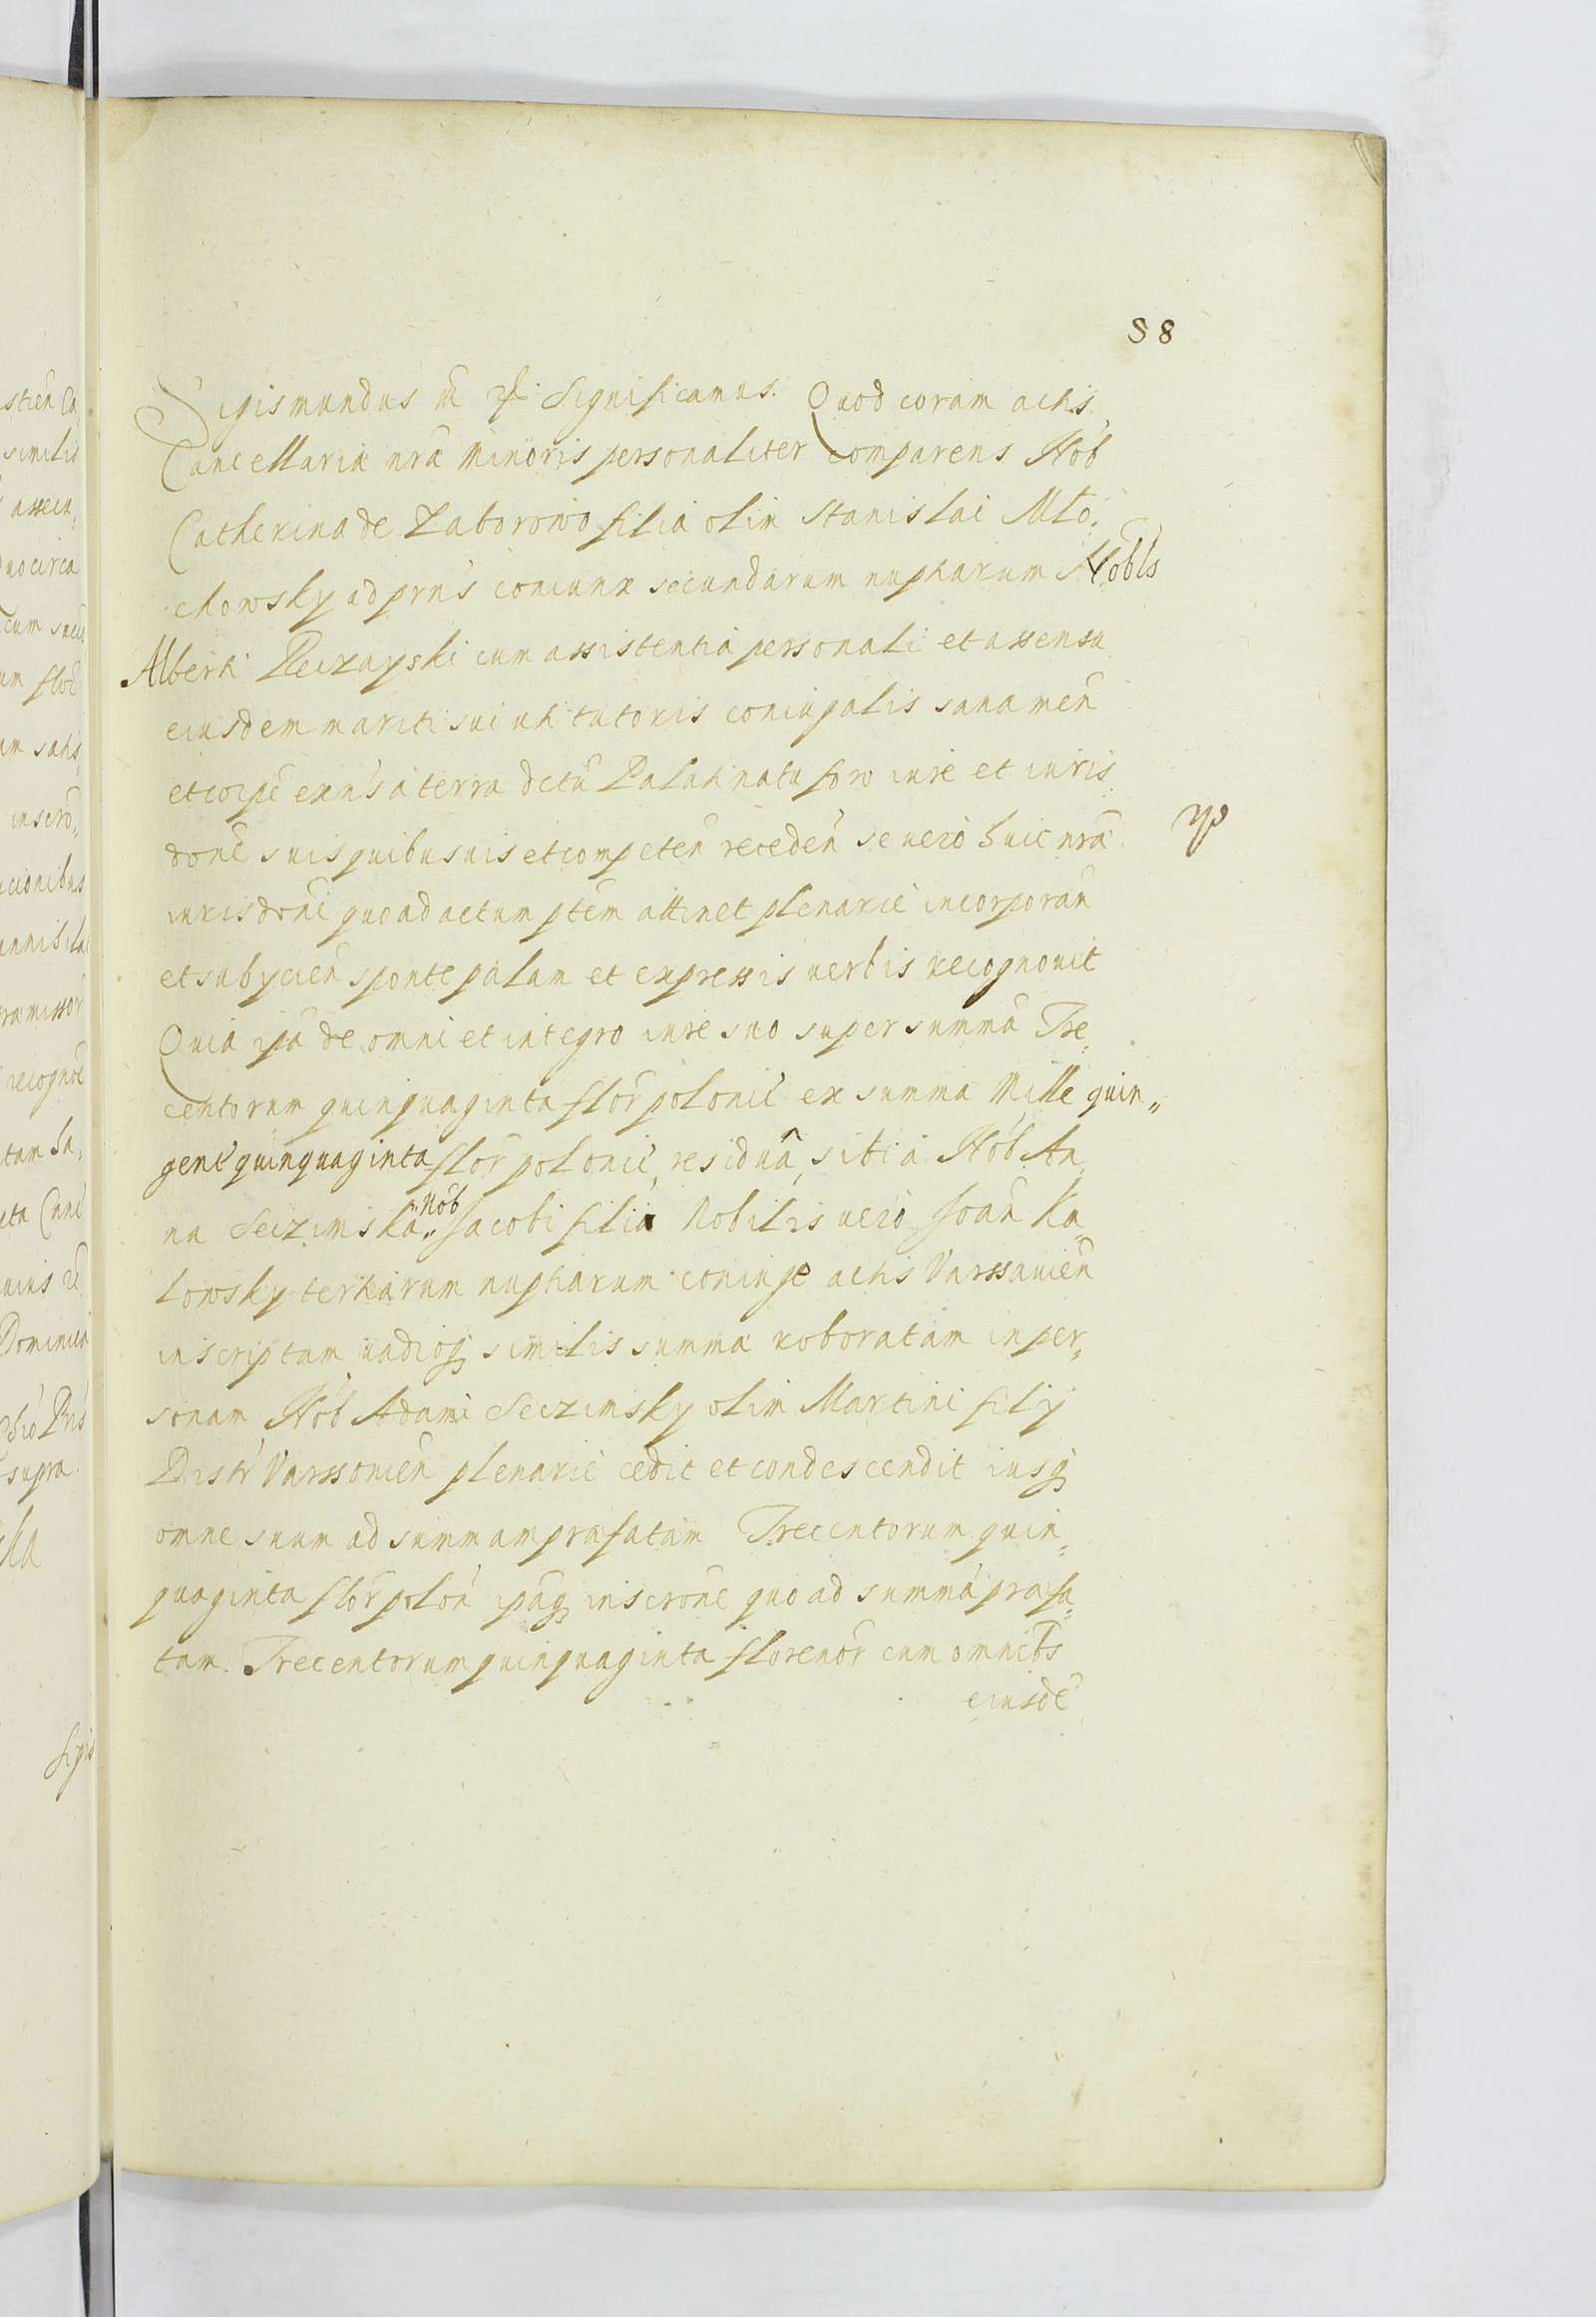 58
Sigismundus etc. Significamus. Quod coram actis
Cancellariæ nrã Minoris personaliter comparens Nob
Catherina de Zaborowo filia olim Stanislai Mło,
chowsky ad prns coniunx secundarum nuptiarum Nobls
Alberti Reczayski cum assistentia personali et assensu
eiusdem mariti sui uti tutoris coniugalis sana men̄
et corpē exns a terra dctū Palatinatu foro iure et iuris
donē suis quibusuis et competen̄ receden̄ se uero huic nrã
iurisdonī quo ad actum ptēm attinet plenariè incorporan̄
et subycien̄ sponte palam et expressis uerbis recognouit
Quia ipā de omni et integro iure suo super summā Tre,
centorum quinquaginta flor̄ polonic̄ ex summa Mille quin„
gent̄ quinquaginta flor̄ polonic̄, residuā, sibi à Nob An,
na Seczimskā„ Nob Jacobi filia Nobilis uero Joan̄ Ka,
lowsky tertiarum nuptiarum coniuge actis Varssauien̄
inscriptam uadioq similis summæ roboratam in per„
sonam Nob Adami Seczimsky olim Martini filij
Distr̄ Varssouien̄ plenariè cedit et condescendit iusq
omne suum ad summam præfatam Trecentorum quin,
quaginta flor̄ polon̄ ipāq inscronē quo ad summā præfa,
tam. Trecentorum quinquaginta florenor̄ cum omnibs
eiusdē